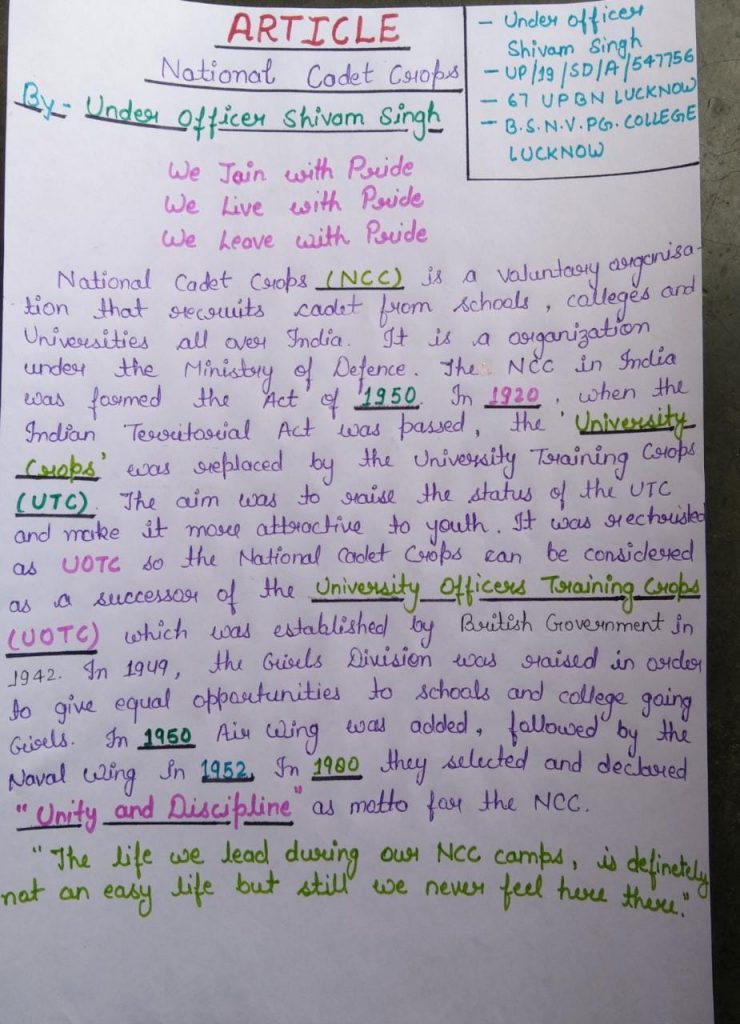 ARTICLE
National Cadet Crops
By- Under Officer Shivam Singh
- Under officer
Shivam Singh
- UP/19/SD/A/547756
- 67 UPBN LUCKNOW
- B.S.N.V.PG.COLLEGE
LUCKNOW
We Join with Pride
We Live with Pride
We Leave with Pride
National Cadet Crops (NCC) is a voluntary organisa-
tion that recruits cadet from schools, colleges and
Universities all over India. It is a organization
under the Ministry of Defence. The NCC in India
was formed the Act of 1950. In 1920, when the
Indian Territorial Act was passed, the 'University
Crops' was replaced by the University Training Crops
(UTC). The aim was to raise the status of the UTC
and make it more attractive to youth. It was
as UOTC so the National Cadet Crops can be considered
as a successor of the University Officers Training Crops
(UOTC) which was established by British Government in
1942. In 1949, the Girls Division was raised in order
to give equal opportunities to schools and college going
Girls. In 1950 Air Wing was added, followed by the
Naval Wing In 1952, In 1980 they selected and declared
"Unity and Discipline" as motto for the NCC.
"The life we lead during our NCC camps, is definetely
not an easy life but still we never feel here there."